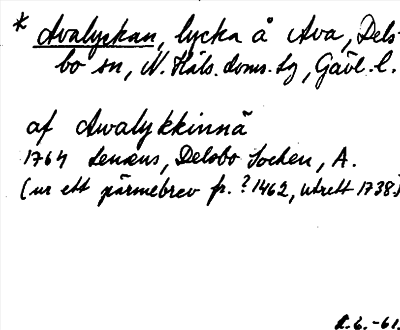 * Avalyckan, lycka å Ava, Dels-
bo sn, N. Häls. doms. sg, Gävl. l.
af Awalykkinnä
1764 Lenæus, Delsbo Sochen, A.
(ur ett pärmebrev fr. ? 1462, utrett 1738)
-61.